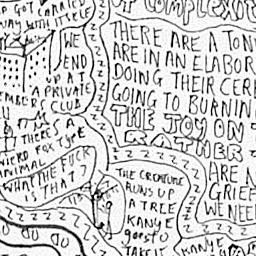 GOT CARRIED
WAY WITH ITSELF
WE
END
UP AT
A PRIVATE
EMBERS CLUB
THERE'S A
WIERD FOX TYPE
ANIMAL
WHAT THE FUCK
IS THAT?
OF COMPLEXIT
THERE ARE A TON
ARE IN AN ELABOR
DOING THEIR CER
GOING TO BURNIN
THE JOY ON T
RATHER T
zzzzzz
THE CREATURE
RUNS UP
A TREE
KANYE
goes TO
TAKE IT
ARE N
GRIEF
WE NEE
zzzzz
KANYE